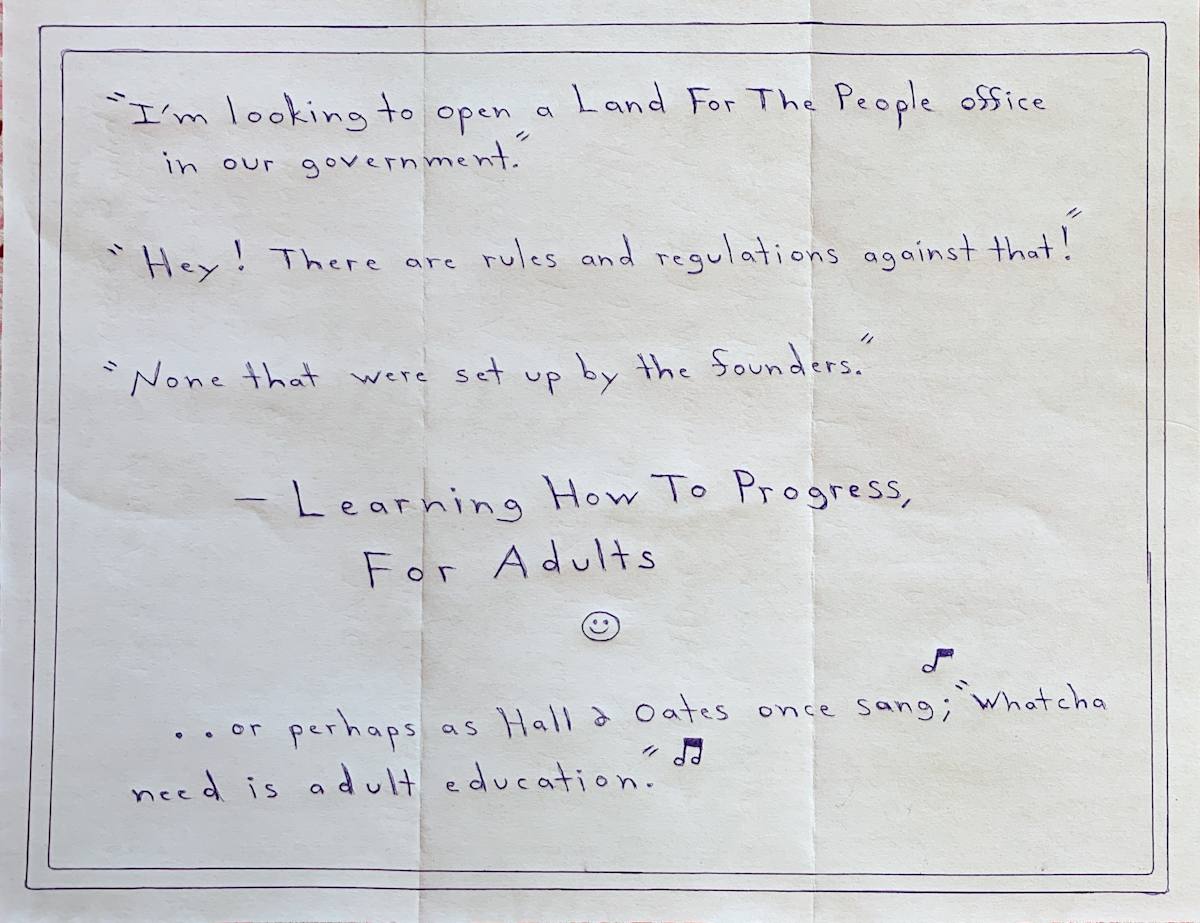 "I'm looking to open a Land For The People office
in our government."
"Hey! There are rules and regulations against that!"
"None that were set up by the founders."
— Learning How To Progress,
For Adults
..or perhaps as Hall & Oates once sang; "Whatcha
need is adult education."